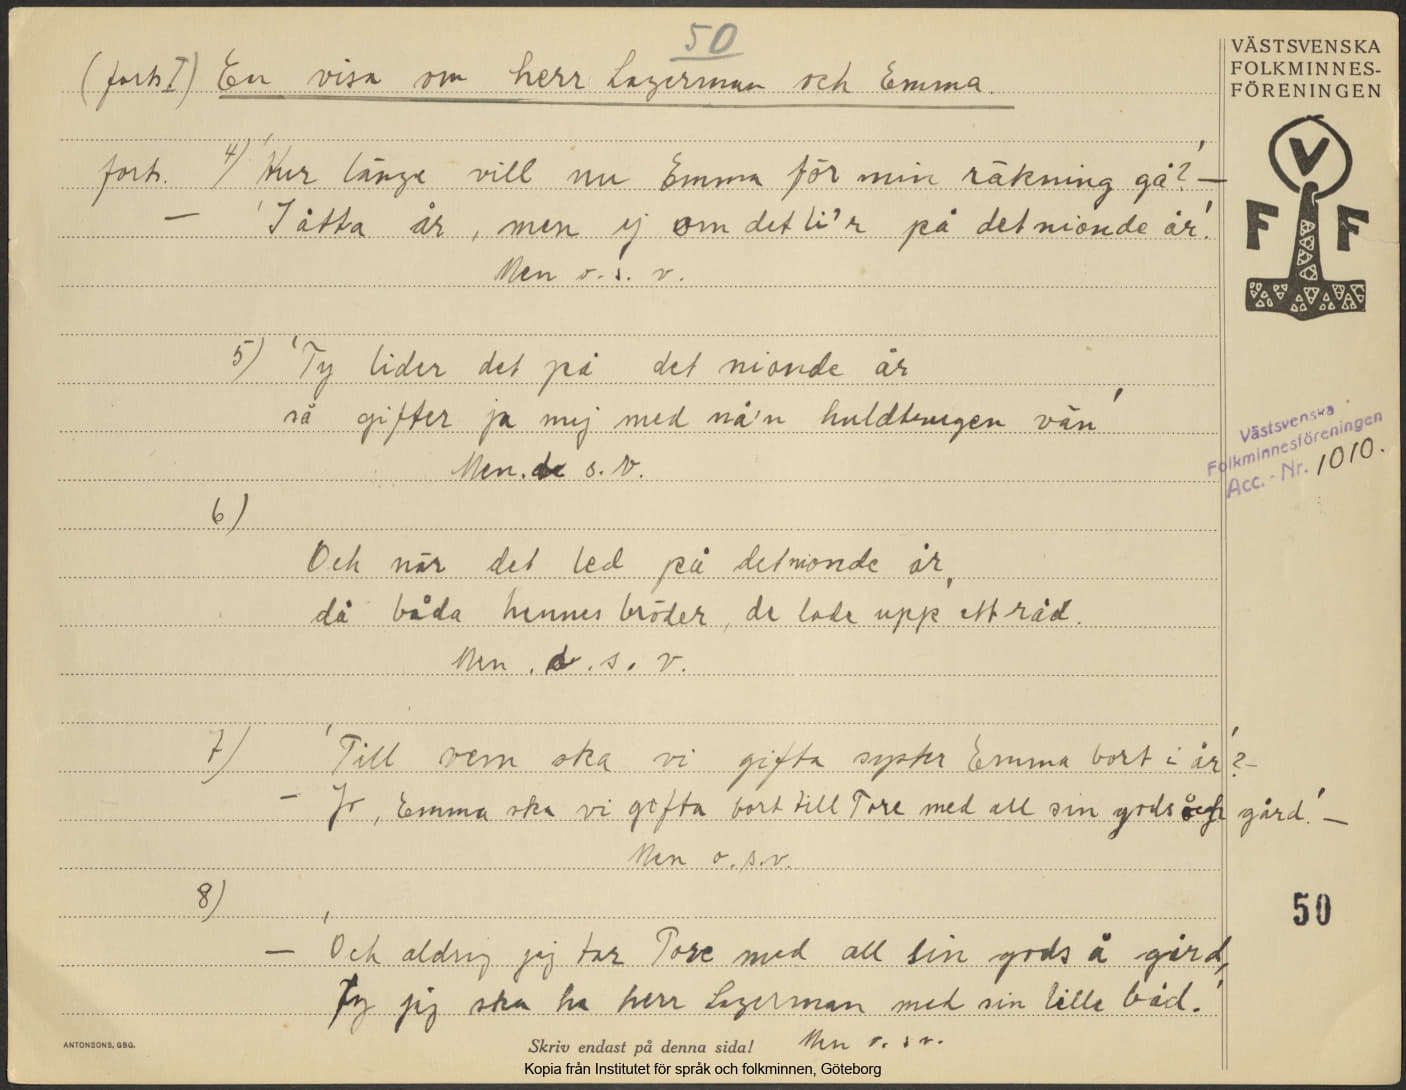 50
(forts I) En visa om herr Lagerman och Emma.
VÄSTSVENSKA
FOLKMINNES-
FÖRENINGEN
V
F F
forts. 4) 'Hur länge vill nu Emma för min räkning gå?' —
— 'I åtta år, men ej om det li'r på det nionde år.'
Men o. s. v.
5) 'Ty lider det på det nionde år
så gifter ja mej med nå'n huldtrogen vän'
Men. o s. v.
Västsvenska
Folkminnesföreningen
Acc. - Nr. 1010.
6)
Och när det led på det nionde år,
då båda hennes bröder, de lade upp ett råd.
Men . o. s. v.
7) 'Till vem ska vi gifta syster Emma bort i år'? —
— Jo, Emma ska vi gifta bort till Tore med all sin gods och gård.' —
Men o. s. v.
8)
50
— 'Och aldrig jag tar Tore med all sin gods å gård,
Ty jag ska ha herr Lagerman med sin lille båd.'
Men o. s v.
ANTONSONS, GBG.
Skriv endast på denna sida!
Kopia från Institutet för språk och folkminnen, Göteborg